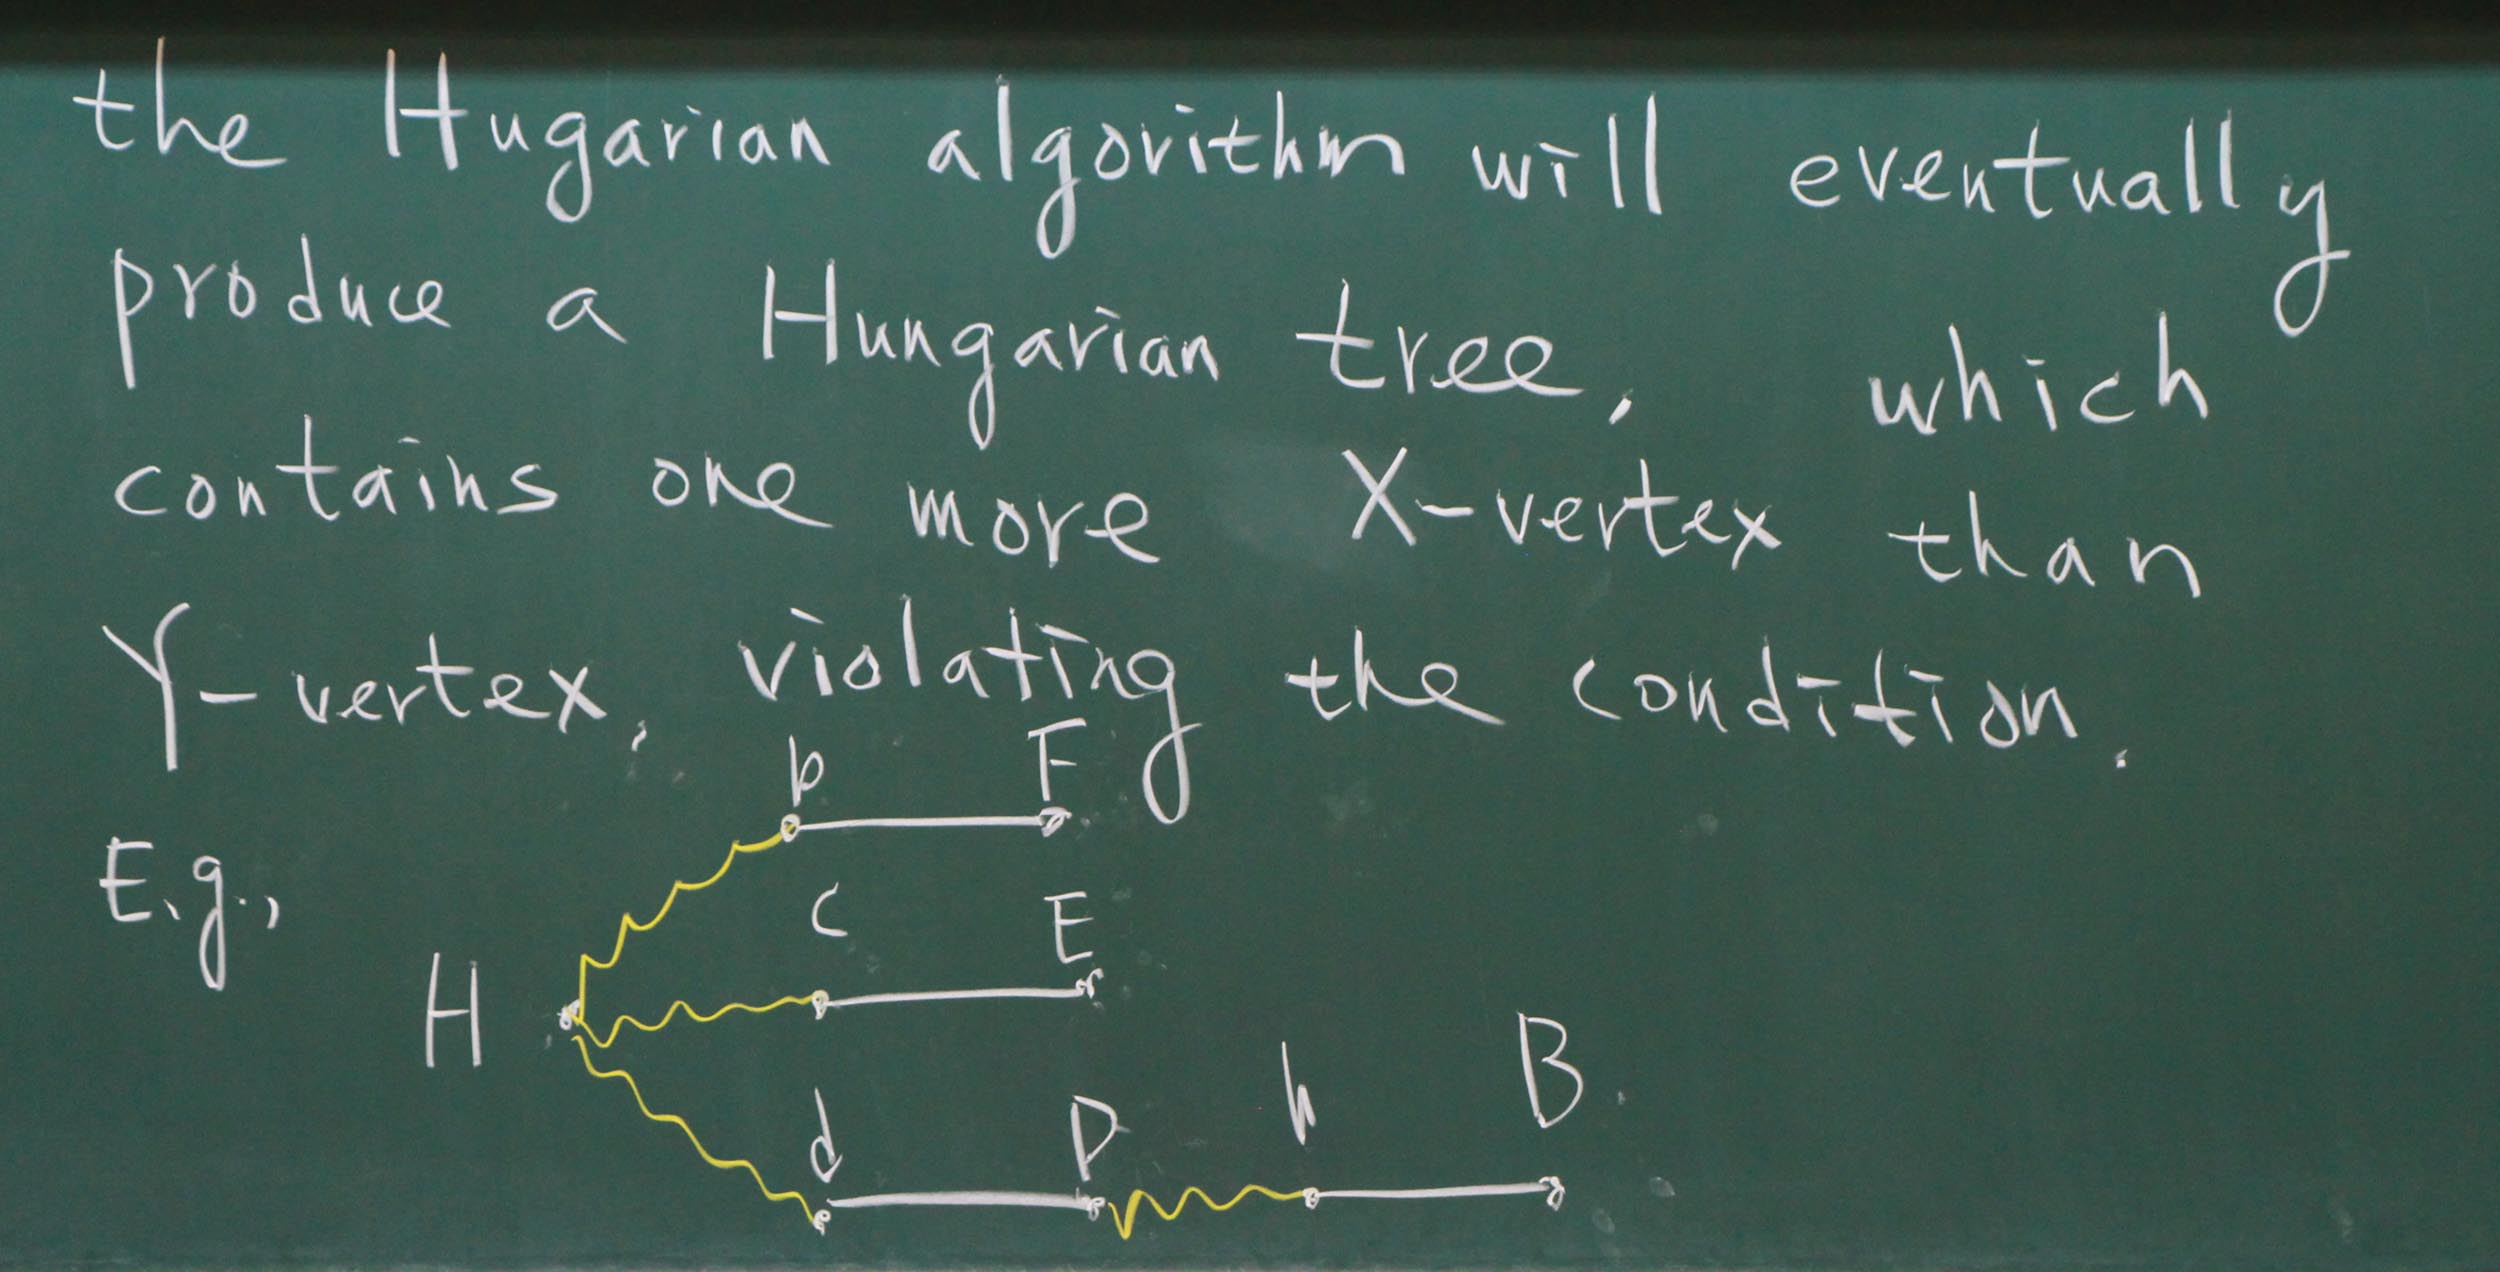 the Hugarian algorithm will eventually
produce a Hungarian tree, which
contains one more X-vertex than
Y-vertex, violating the condition.
b F
E.g., c E
H
d D h B